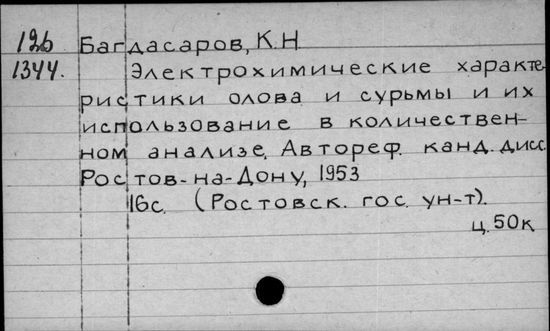 126 Багдасаров, К.Н
1344. Электрохимические характе-
ристики олова и сурьмы и их
использование в количествен-
ном анализе. Автореф. канд. дисс.
Ростов-на-Дону, 1953
16с. (Ростовск. гос. ун-т).
ц. 50к